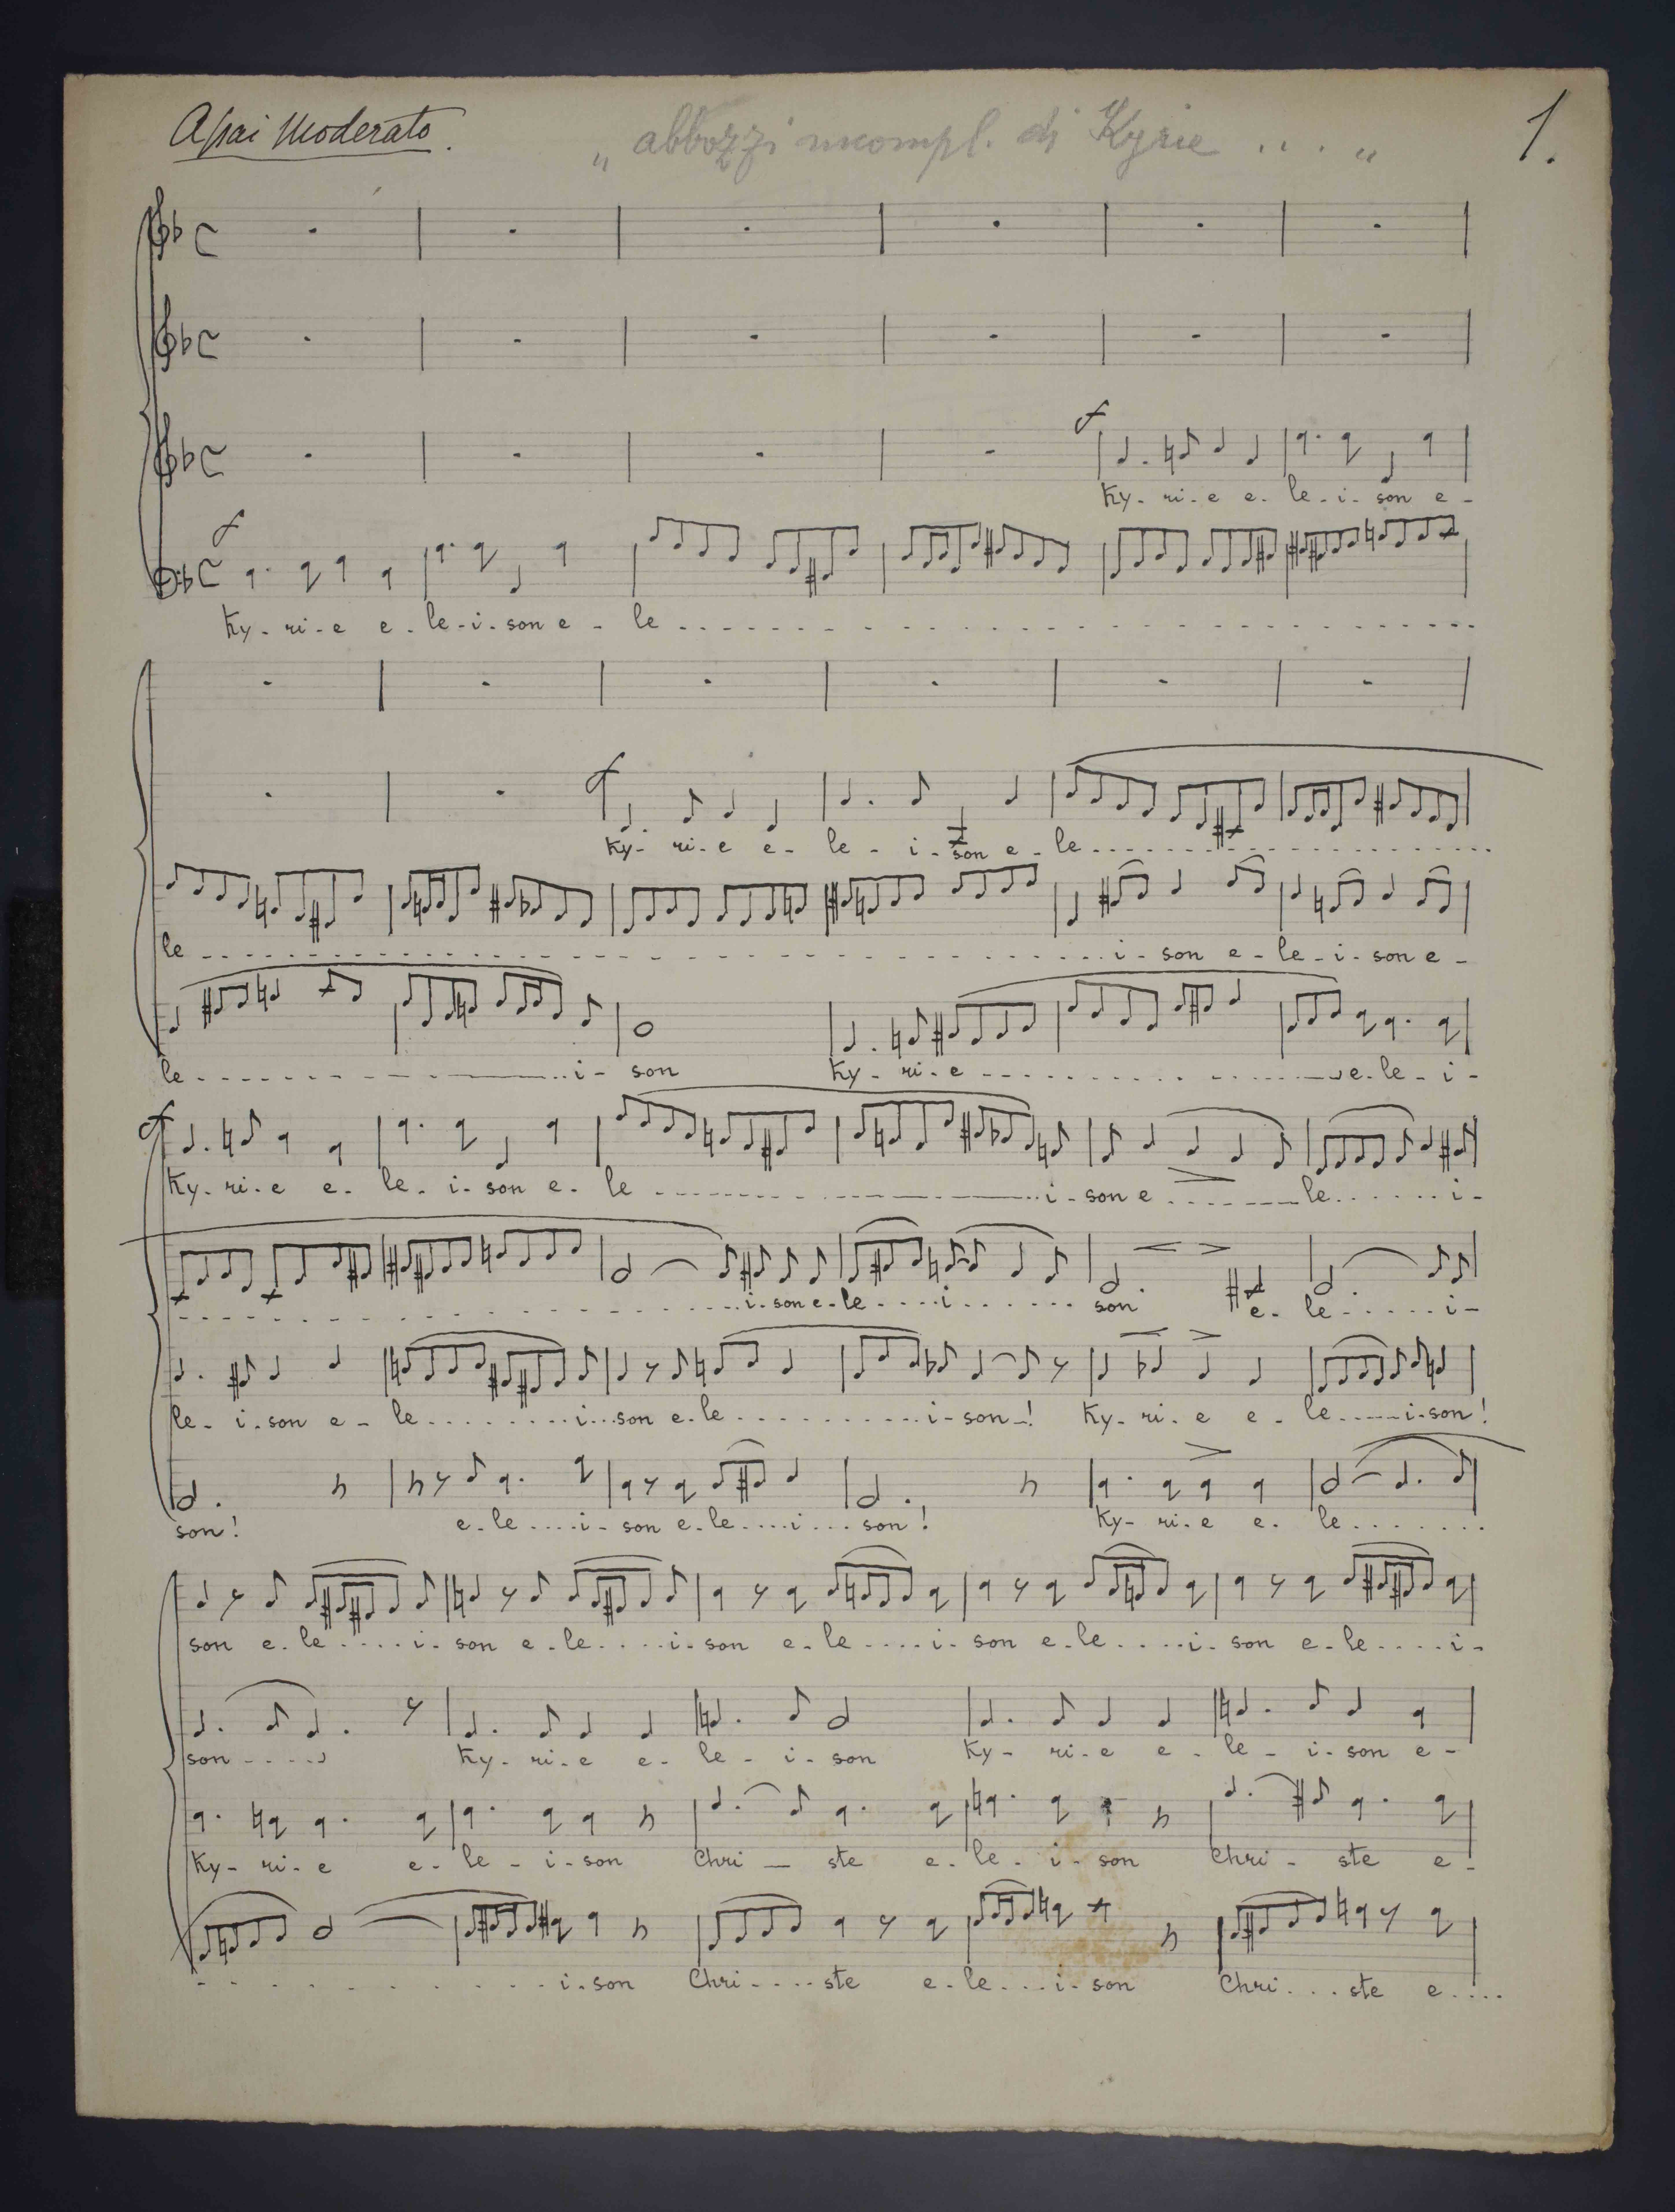 Assai Moderato.
„ abbozzi incompl. di Kyrie ... "
1.
f
Ky - ri - e e - le - i - son e -
f
Ky - ri - e e - le - i - son e - le
f
Ky - ri - e e - le - i - son e - le
le i - son e - le - i - son e -
le i - son Ky - ri - e e - le - i -
f
Ky - ri - e e - le - i - son e - le i - son e le i -
i - son e - le i son e - le i -
le - i - son e - le i son e - le i - son! Ky - ri - e e - le i - son!
son! e - le i - son e - le i son! Ky - ri - e e - le
son e - le i - son e - le i - son e - le i - son e - le i - son e - le i -
son Ky - ri - e e - le - i - son Ky - ri - e e - le - i - son e -
Ky - ri - e e - le - i - son Chri - ste e - le - i - son Chri - ste e -
i - son Chri ste e - le i - son Chri ste e